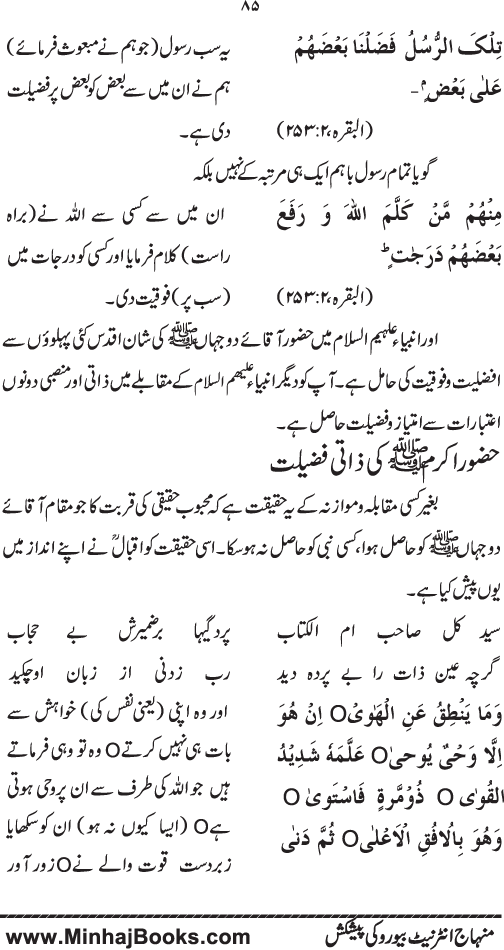 ۸۵
تِلْکَ الرُّسُلُ فَضَّلْنَا بَعْضَهُمْ یہ سب رسول (جو ہم نے مبعوث فرمائے)
عَلٰی بَعْضٍ۔ ہم نے ان میں سے بعض کو بعض پر فضیلت
(البقرہ،۲:۲۵۳) دی ہے۔
گویا تمام رسول باہم ایک ہی مرتبہ کے نہیں بلکہ
مِنْهُمْ مَّنْ کَلَّمَ اللهَ وَ رَفَعَ ان میں سے کسی سے اللہ نے (براہ
بَعْضَهُمْ دَرَجٰتٍ ط راست) کلام فرمایا اور کسی کو درجات میں
(البقرہ،۲:۲۵۳) (سب پر) فوقیت دی۔
اور انبیاء علیہم السلام میں حضور آقائے دو جہاں ﷺ کی شان اقدس کئی پہلوؤں سے
افضلیت و فوقیت کی حامل ہے۔ آپ کو دیگر انبیاء علیھم السلام کے مقابلے میں ذاتی اور منصبی دونوں
اعتبارات سے امتیاز و فضیلت حاصل ہے۔
حضور اکرم ﷺ کی ذاتی فضیلت
بغیر کسی مقابلہ و موازنہ کے یہ حقیقت ہے کہ محبوب حقیقی کی قربت کا جو مقام آقائے
دو جہاں ﷺ کو حاصل ہوا، کسی نبی کو حاصل نہ ہوسکا۔ اسی حقیقت کو اقبالؒ نے اپنے انداز میں
یوں پیش کیا ہے۔
سید کل صاحب ام الکتاب پردگیہا برضمیرش بے حجاب
گرچہ عین ذات را بے پردہ دید رب زدنی از زبان اوچکید
وَمَا یَنْطِقُ عَنِ الْهَوٰیO اِنْ هُوَ اور وہ اپنی (یعنی نفس کی) خواہش سے
اِلَّا وَحْیٌ یُوحیٰO عَلَّمَهٗ شَدِیْدُ بات ہی نہیں کرتےO وہ تو وہی فرماتے
الْقُوٰیO ذُوْمِرَّةٍ فَاسْتَویٰO ہیں جو اللہ کی طرف سے ان پر وحی ہوتی
وَهُوَ بِالْاُفُقِ الْاَعْلٰیO ثُمَّ دَنٰی ہےO (ایسا کیوں نہ ہو) ان کو سکھایا
زبردست قوت والے نےO زور آور
منہاج انٹرنیٹ بیورو کی پیشکش www.MinhajBooks.com